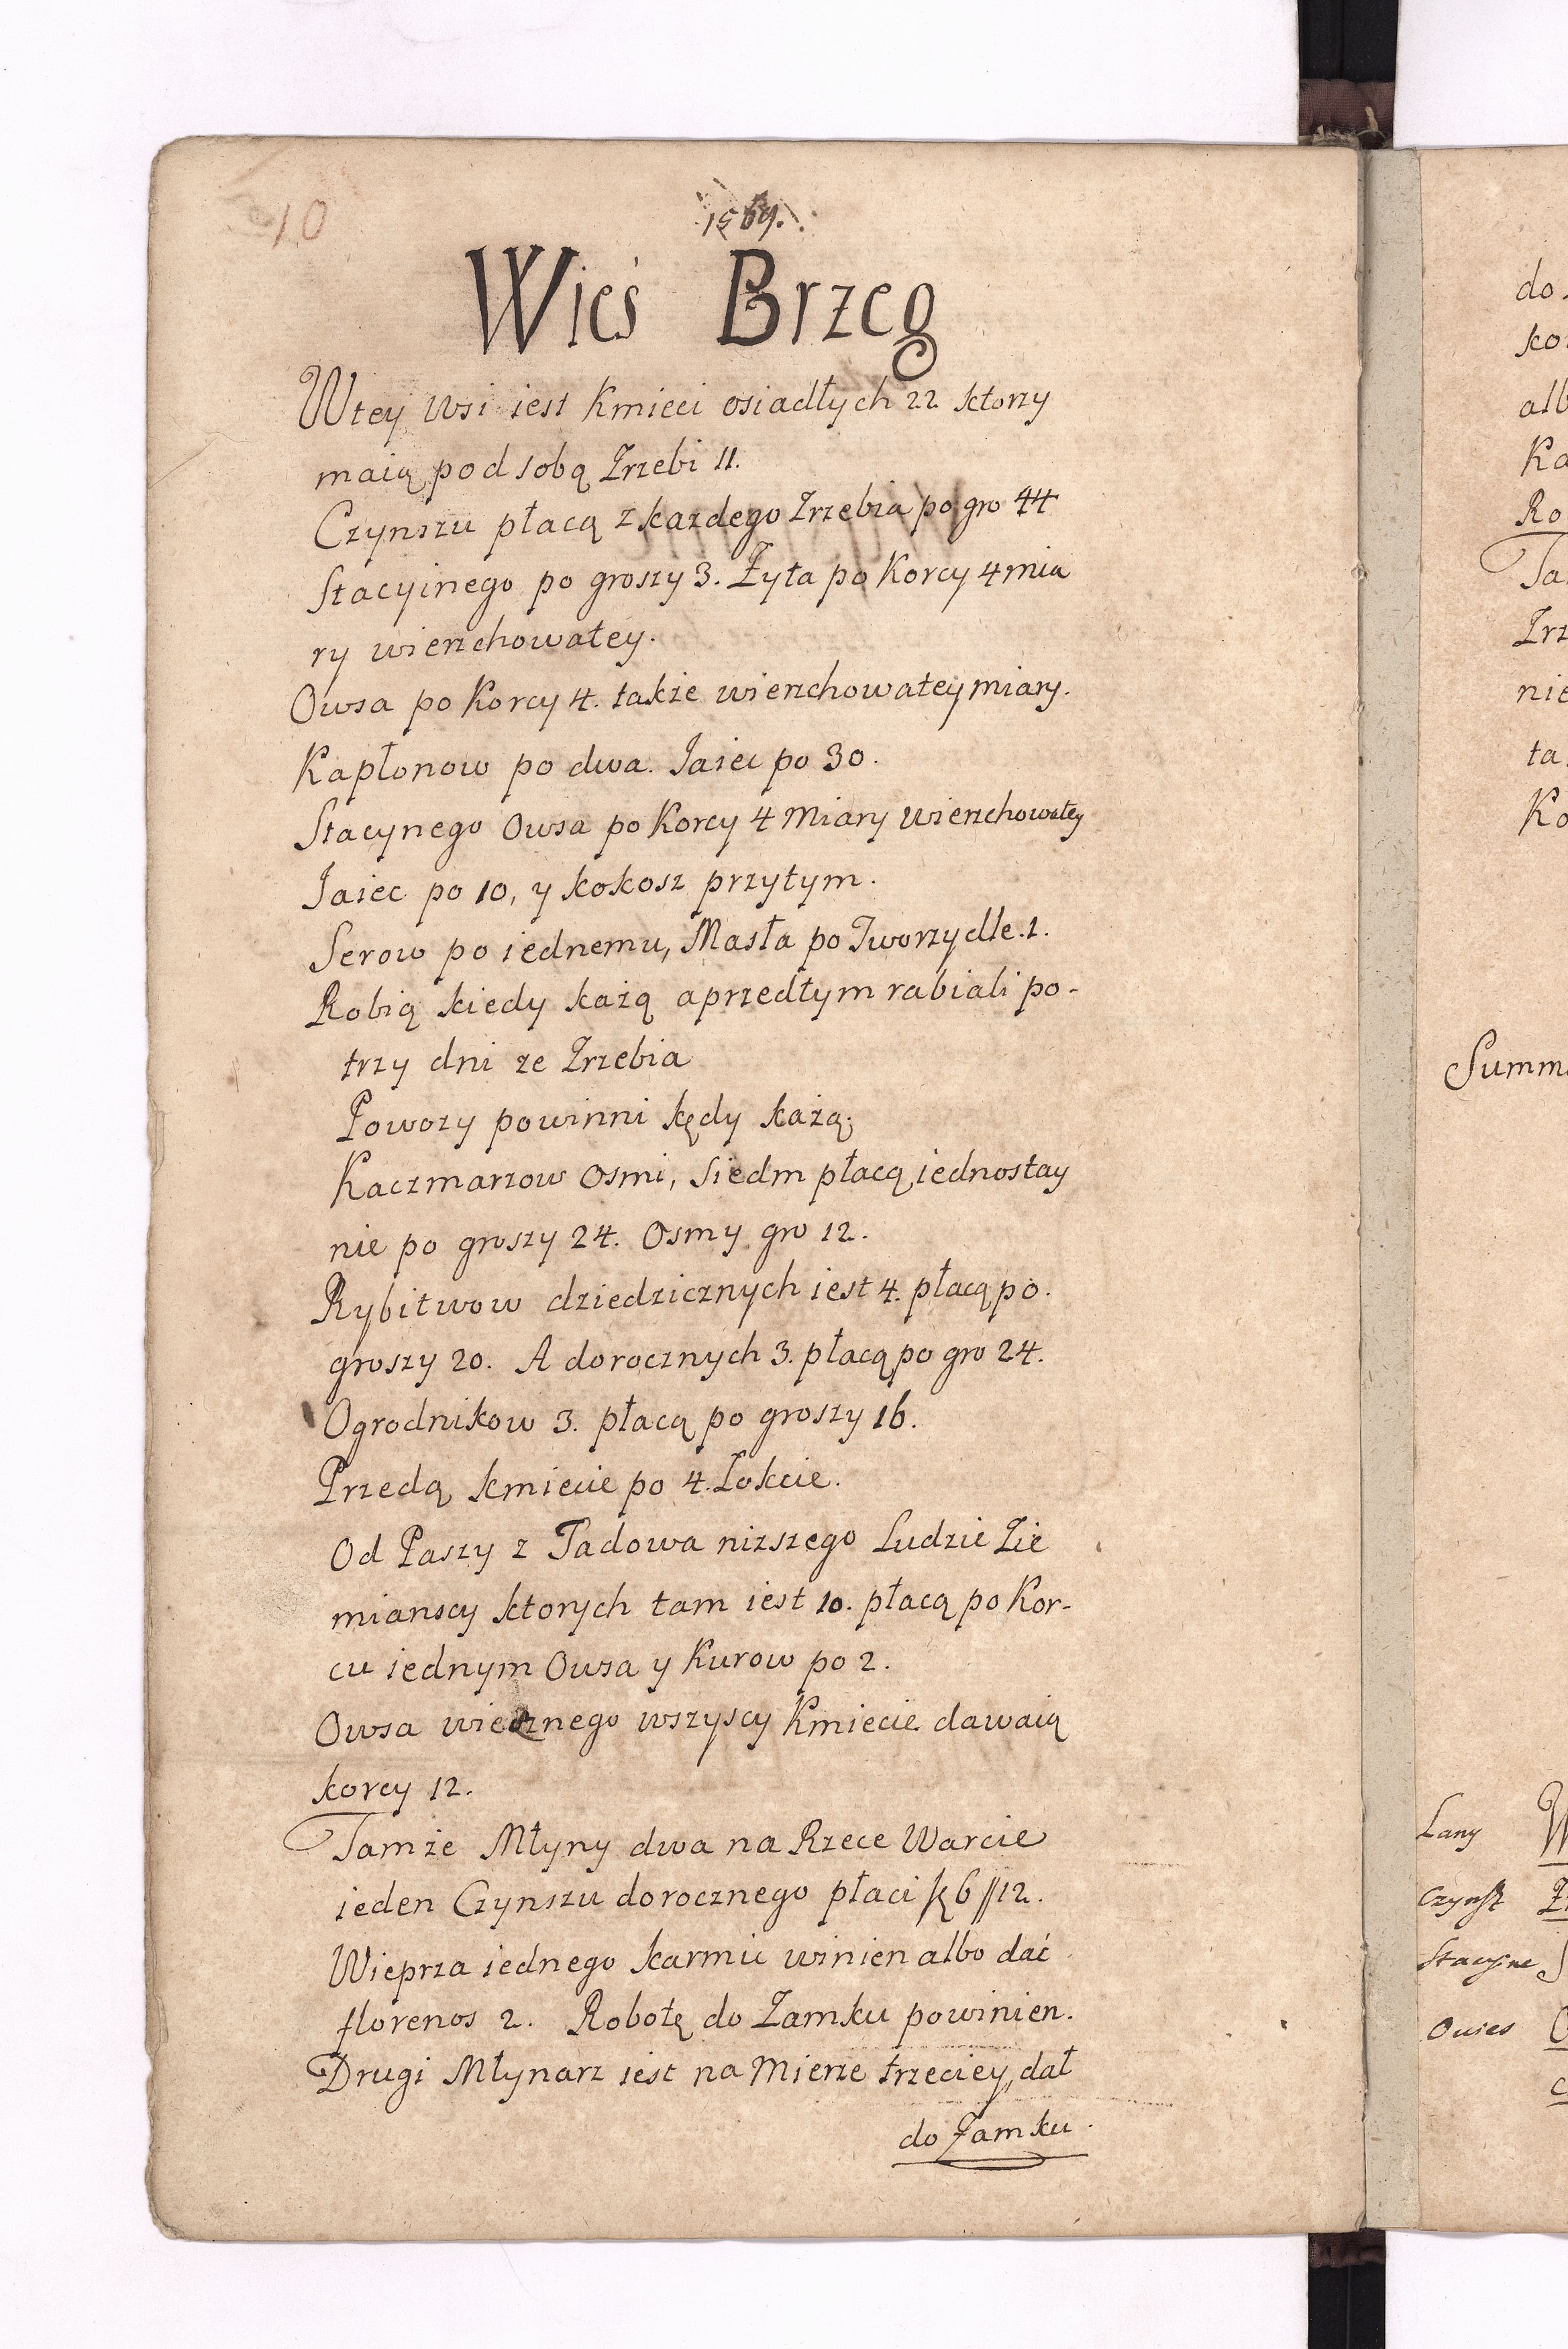 10
1569.
Wieś Brzeg
Wtey Wsi iest Kmieci osiadłych 22 ktorzy
maią pod sobą Zrzebi 11.
Czynszu płacą z kazdego Zrzebia po gro 44
Stacyinego po groszy 3. Żyta po Korcy 4 mia
ry wierzchowatey.
Owsa po Korcy 4. także wierzchowatey miary.
Kapłonow po dwa. Jaiec po 30.
Stacynego Owsa po Korcy 4 Miary Wierzchowatey
Jaiec po 10, y kokosz przytym.
Serow po iednemu, Masła po Tworzydle 1.
Robią kiedy każą aprzedtym rabiali po-
trzy dni ze Zrzebia
Powozy powinni kędy każą;
Kaczmarzow Osmi, Siedm płacą iednostay
nie po groszy 24. Osmy gro 12.
Rybitwow dziedzicznych iest 4. płacą po.
groszy 20. A dorocznych 3. płacą po gro 24.
Ogrodnikow 3. płacą po groszy 16.
Przedą kmiecie po 4. Łokcie.
Od Paszy z Tadowa nizszego Ludzie Zie
mianscy ktorych tam iest 10. płacą po Kor-
cu iednym Owsa y Kurow po 2.
Owsa wiecznego wszyscy Kmiecie dawaią
korcy 12.
Tamże Młyny dwa na Rzece Warcie
ieden Czynszu dorocznego płaci 6//12.
Wieprza iednego karmic winien albo dać
florenos 2. Robotę do Zamku powinien.
Drugi Młynarz iest na Mierze trzeciey, dał
do Zamku.
do
ko
alb
Ka
Ro
Ta
Zrz
nie
ta
Ko
Summ
Lany W
Czynsz
Stacyine
Owies